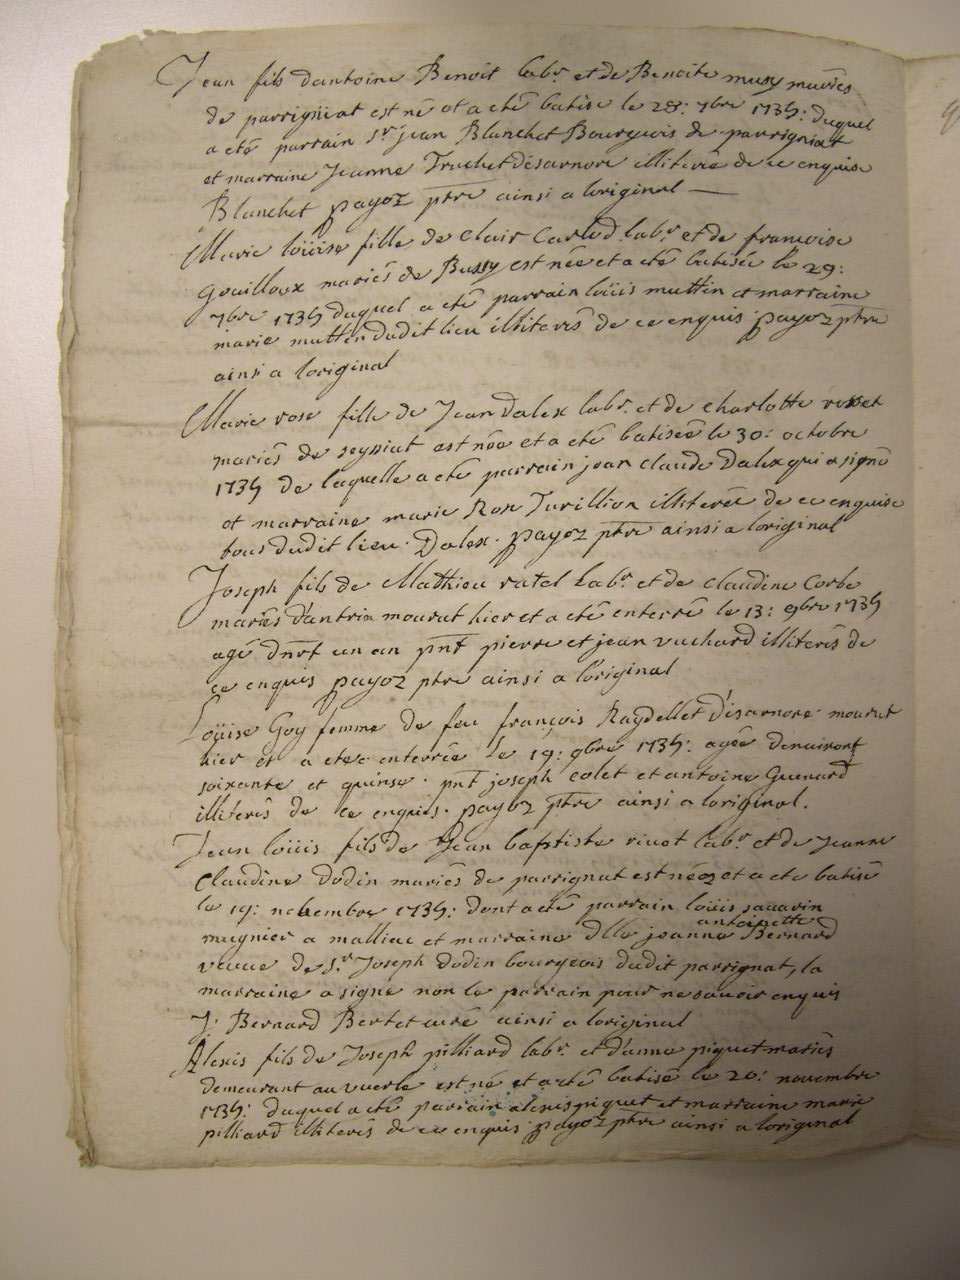 Jean fils dantoine Benoit labr. et de Benoite musy mariés
de parrigniat est né et a eté batisé le 28: 7bre 1735: duquel
a eté parrain sr jean Blanchet Bourgeois de parrigniat
et marraine Jeanne Truchet désarnore illiterée de ce enquise
Blanchet payoz ptre ainsi a loriginal
Marie loüise fille de clair Carlod labr. et de francoise
gouilloux mariés de Bussy est née et a eté batisée le 29:
7bre 1735 duquel a eté parrain loüis muttin et marraine
marie muttin dudit lieu illiterés de ce enquis payoz ptre
ainsi a loriginal
Marie rose fille de Jean dalex labr. et de charlotte rosset
mariés de seyssiat est née et a eté batisée le 30: octobre
1735 de laquelle a eté parrain jean claude Dalex qui a signé
et marraine marie Rose Turillion illiterée de ce enquise
tous dudit lieu. Dalex. payoz ptre ainsi a loriginal
Joseph fils de Mathieu ratel Labr. et de claudine Corbe
mariés mourut hier et a eté enterré le 13: 9bre 1735
agé dnrt un an pnt pierre et jean vuchard illiterés de
ce enquis payoz ptre ainsi a loriginal
Loüise Goy femme de feu françois Raydellet d'ésarnore mourut
hier et a eteé enterrée le 19: 9bre 1735: agée denuiront
soixante et quinse. pnt joseph colet et antoine Guenard
illiterés de ce enquis. payoz ptre ainsi a loriginal.
Jean loüis fils de Jean baptiste rivet labr. et de Jeanne
claudine dodin mariés de parrignat est né et a eté batisé
le 19: 1735: dont a eté parrain loüis savarin
mugnier a malliac et marraine dlle jeanne antoinette Bernard
veuue de sr. Joseph dodin bourgeois dudit parrignat, la
marraine a signé non le parrain pour ne sauoir enquis
J: Bernard Bertet curé ainsi a loriginal
Alexis fils de Joseph pilliard labr. et danne piquet mariés
demeurant au vuerle est né et a eté batisé le 20: novembre
1735: duquel a eté parrain alexis piquet et marraine marie
pilliard illiterés de ce enquis payoz ptre ainsi a loriginal